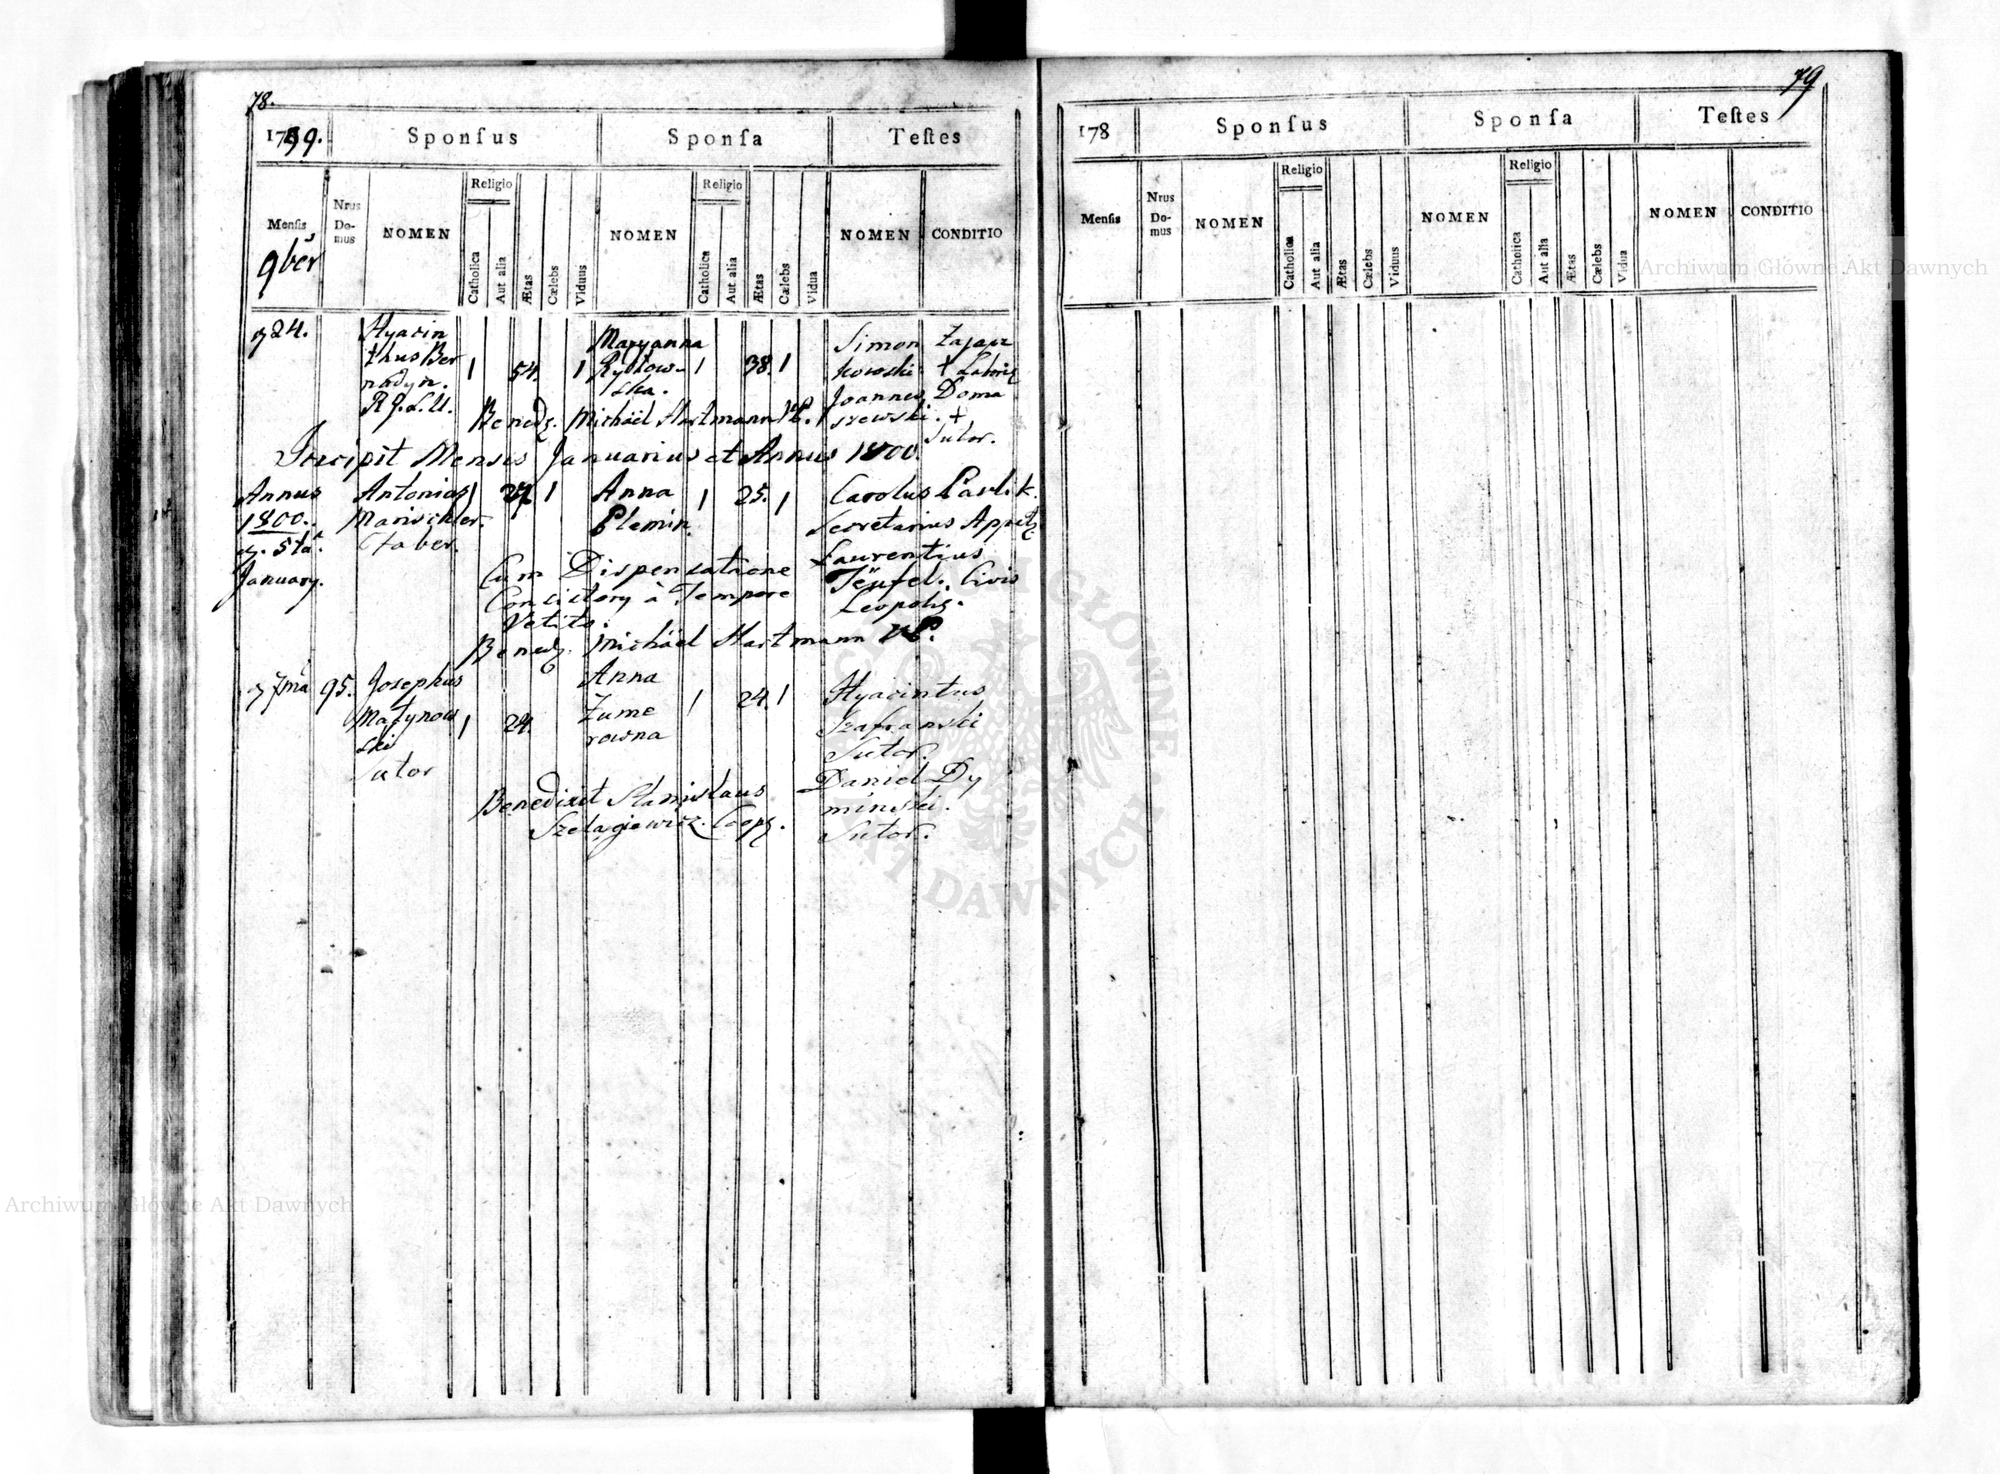 78.
1799. Sponſus Sponſa Teſtes
Menſis Nrus Do- mus NOMEN Religio Catholica Aut alia Ætas Cælebs Viduus NOMEN Religio Catholica Aut alia Ætas Cælebs Vidua NOMEN CONDITIO
9bër
24. Hyacin Maryanna Simon Zajacz
thus Ber 1 54. 1 Rythow- 1 38. 1 kowski +
nadyn. ska. Joannes Doma
Bened. Michäel Hartmann szewski. +
Sutor.
Incipit Mensis Januarius et Annus 1800.
Annus Antonius 1 27 1 Anna 1 25. 1 Carolus Pavlik.
1800. Marischler. Plemin. Secretarius
5ta Faber. Laurentius
January. Cum Dispensatione Teüfel. Civis
Consistory à Tempore Leopolis.
Vetito.
Bened. Michäel Hartmann
7ma 95. Josephus Anna Hyacintus
Matynow 1 24. Zume 1 24. 1 Szafranski
ski rowna Sutor.
Sutor Daniel Dy
Benedixit Stanislaus minski.
Szelagiewicz. Coop. Sutor.
79
178 Sponſus Sponſa Teſtes
Menſis Nrus Do- mus NOMEN Religio Catholica Aut alia Ætas Cælebs Viduus NOMEN Religio Catholica Aut alia Ætas Cælebs Vidua NOMEN CONDITIO
Archiwum Główne Akt Dawnych
ARCHIWUM GŁÓWNE AKT DAWNYCH
Archiwum Główne Akt Dawnych